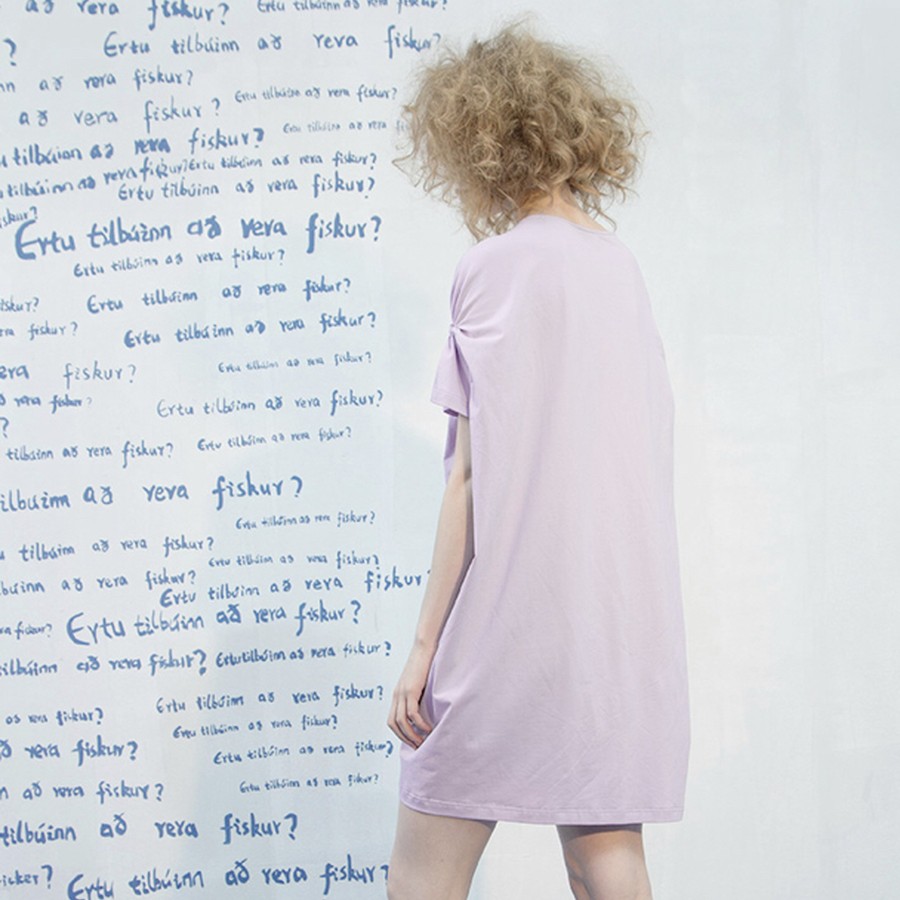 að vera fiskur?
Ertu tilbúinn að vera fiskur?
?
Ertu tilbúinn að vera fiskur?
að vera fiskur?
að vera fiskur?
Ertu tilbúinn að vera fiskur?
tilbúinn að vera fiskur?
Ertu tilbúinn að vera fiskur?
tilbúinn að vera fiskur?
Ertu tilbúinn að vera fiskur?
Ertu tilbúinn að vera fiskur?
fiskur?
Ertu tilbúinn að vera fiskur?
Ertu tilbúinn að vera fiskur?
fiskur?
Ertu tilbúinn að vera fiskur?
fiskur?
Ertu tilbúinn að vera fiskur?
vera fiskur?
Ertu tilbúinn að vera fiskur?
vera fiskur?
Ertu tilbúinn að vera fiskur?
?
tilbúinn að vera fiskur?
Ertu tilbúinn að vera fiskur?
tilbúinn að vera fiskur?
Ertu tilbúinn að vera fiskur?
tilbúinn að vera fiskur?
Ertu tilbúinn að vera fiskur?
að vera fiskur?
Ertu tilbúinn að vera fiskur?
fiskur?
Ertu tilbúinn að vera fiskur?
tilbúinn að vera fiskur?
Ertu tilbúinn að vera fiskur?
Ertu tilbúinn að vera fiskur?
að vera fiskur?
Ertu tilbúinn að vera fiskur?
að vera fiskur?
Ertu tilbúinn að vera fiskur?
að vera fiskur?
Ertu tilbúinn að vera fiskur?
tilbúinn að vera fiskur?
Ertu tilbúinn að vera fiskur?